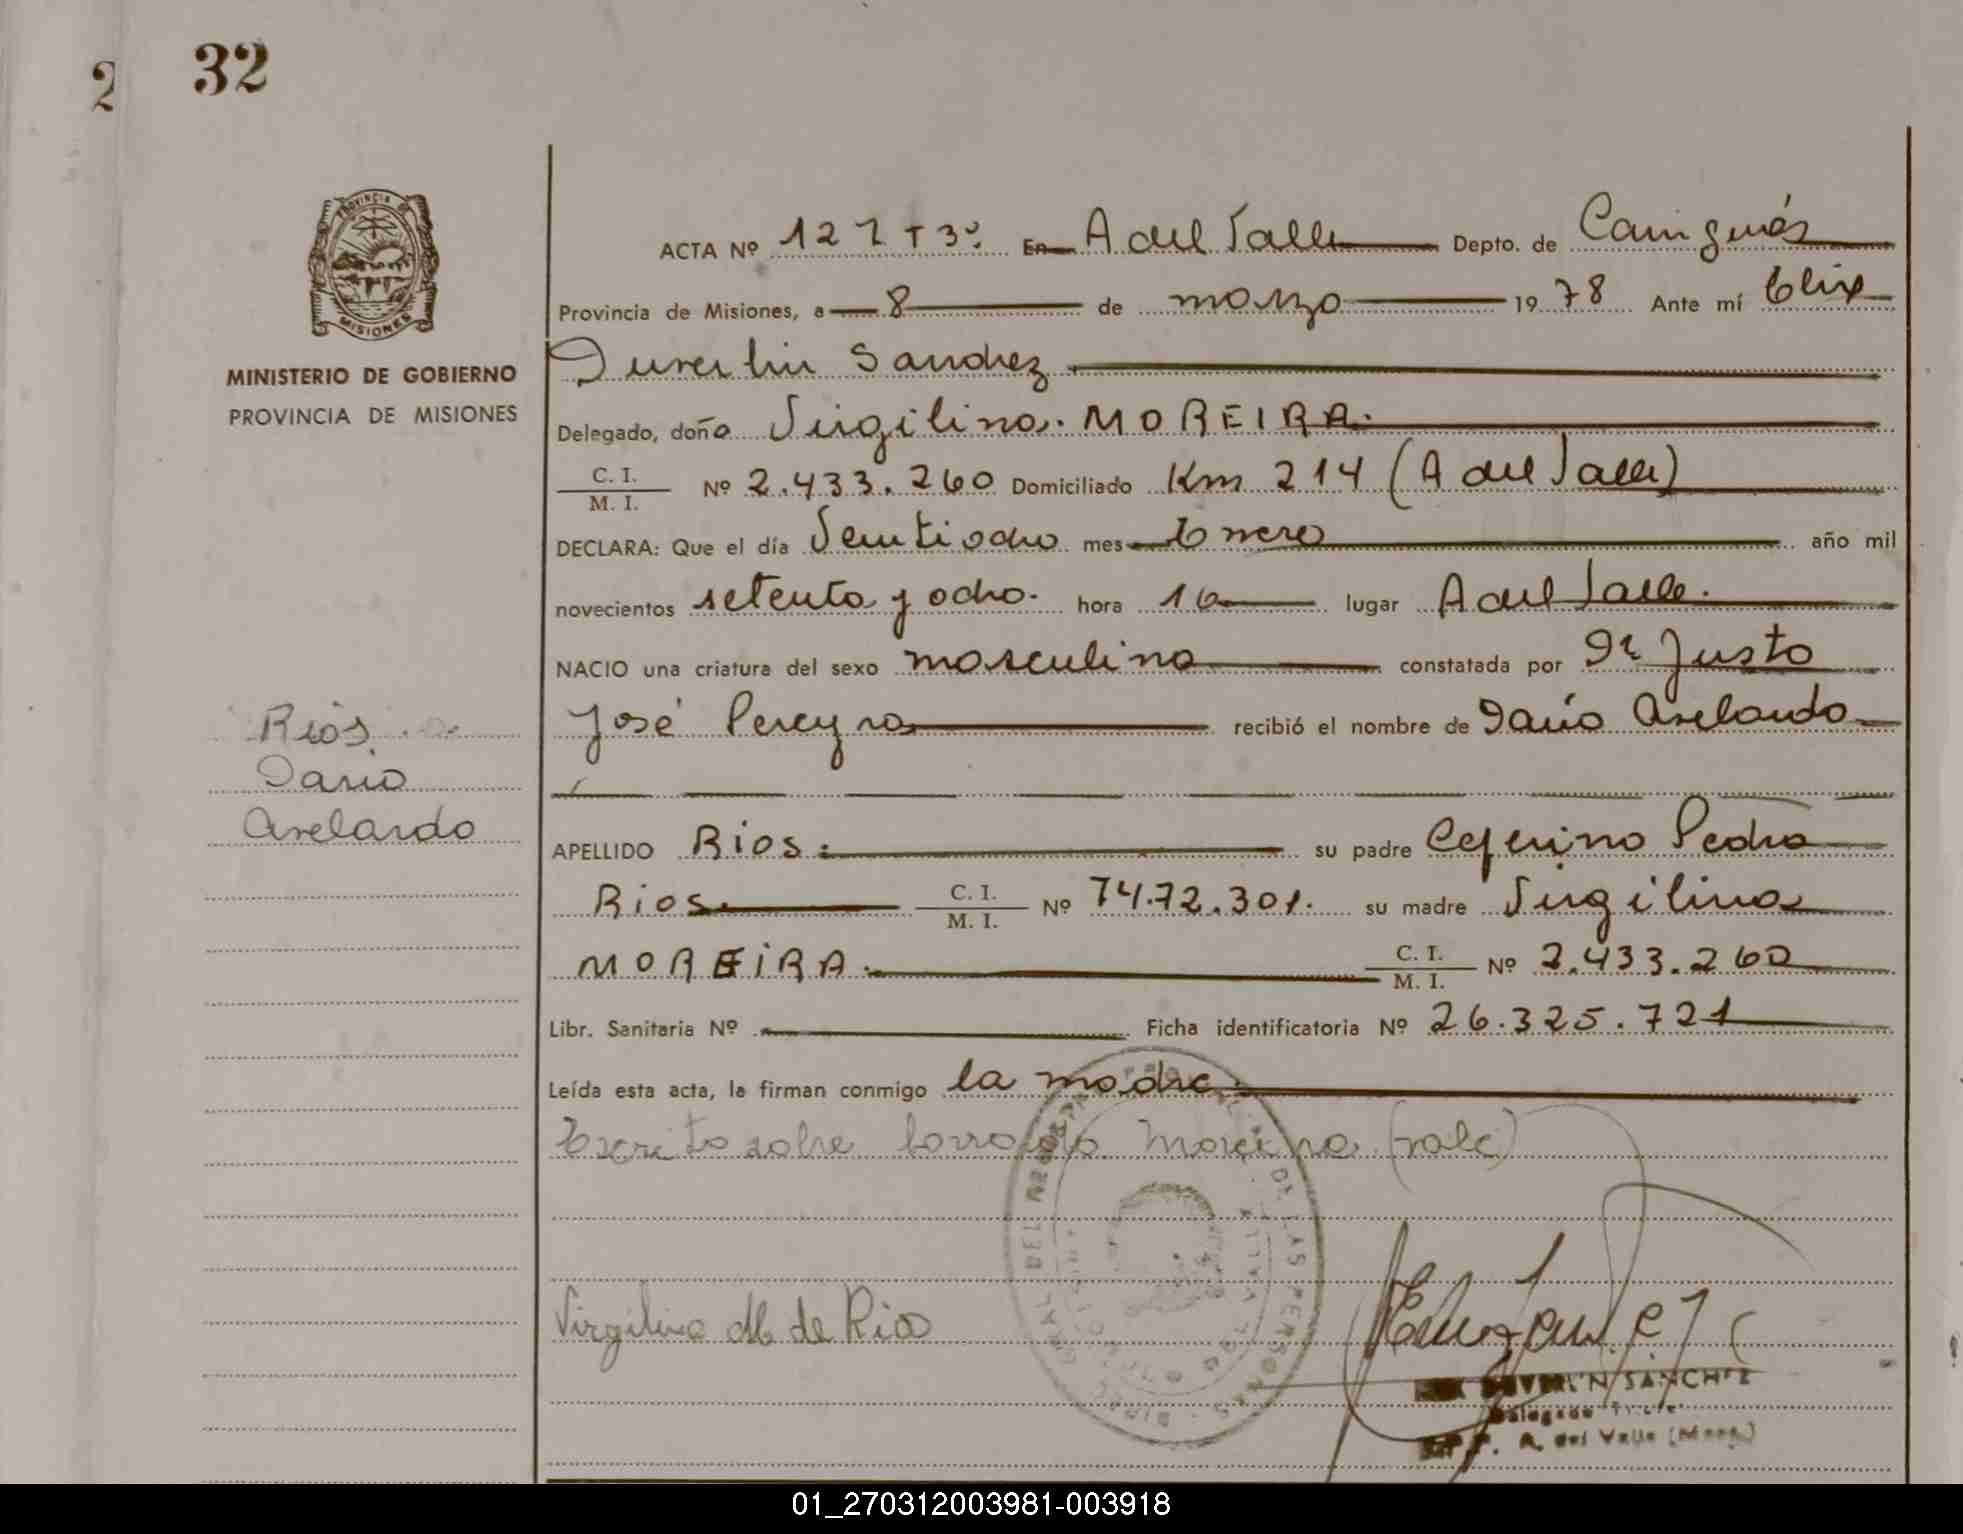 32
2
PROVINCIA DE
MISIONES
MINISTERIO DE GOBIERNO
PROVINCIA DE MISIONES
ACTA Nº 127 T 3º. En A del Valle Depto. de Cainguás
Provincia de Misiones, a 8 de marzo 1978 Ante mí Elix
Duverlin Sanchez
Delegado, doña Virgilina. MOREIRA.
C. I.
M. I. Nº 2.433.260 Domiciliado Km 214 (A del Valle)
DECLARA: Que el día Veintiocho mes Enero año mil
novecientos setenta y ocho. hora 16 lugar A del Valle.
NACIO una criatura del sexo masculino constatada por Dr Justo
José Pereyra recibió el nombre de Darío Avelardo
Ríos.
Dario
Avelardo
APELLIDO Rios. su padre Ceferino Pedro
Rios. C. I.
M. I. Nº 74.72.301. su madre Virgilina
MOREIRA. C. I.
M. I. Nº 2.433.260
Libr. Sanitaria Nº Ficha identificatoria Nº 26.325.721
Leída esta acta, la firman conmigo la madre.
Escrito sobre borrado Moreira (vale)
Virgilina M de Rios
DUVERLIN SANCHEZ
Delegado
A. del Valle (Mnes)
01_270312003981-003918